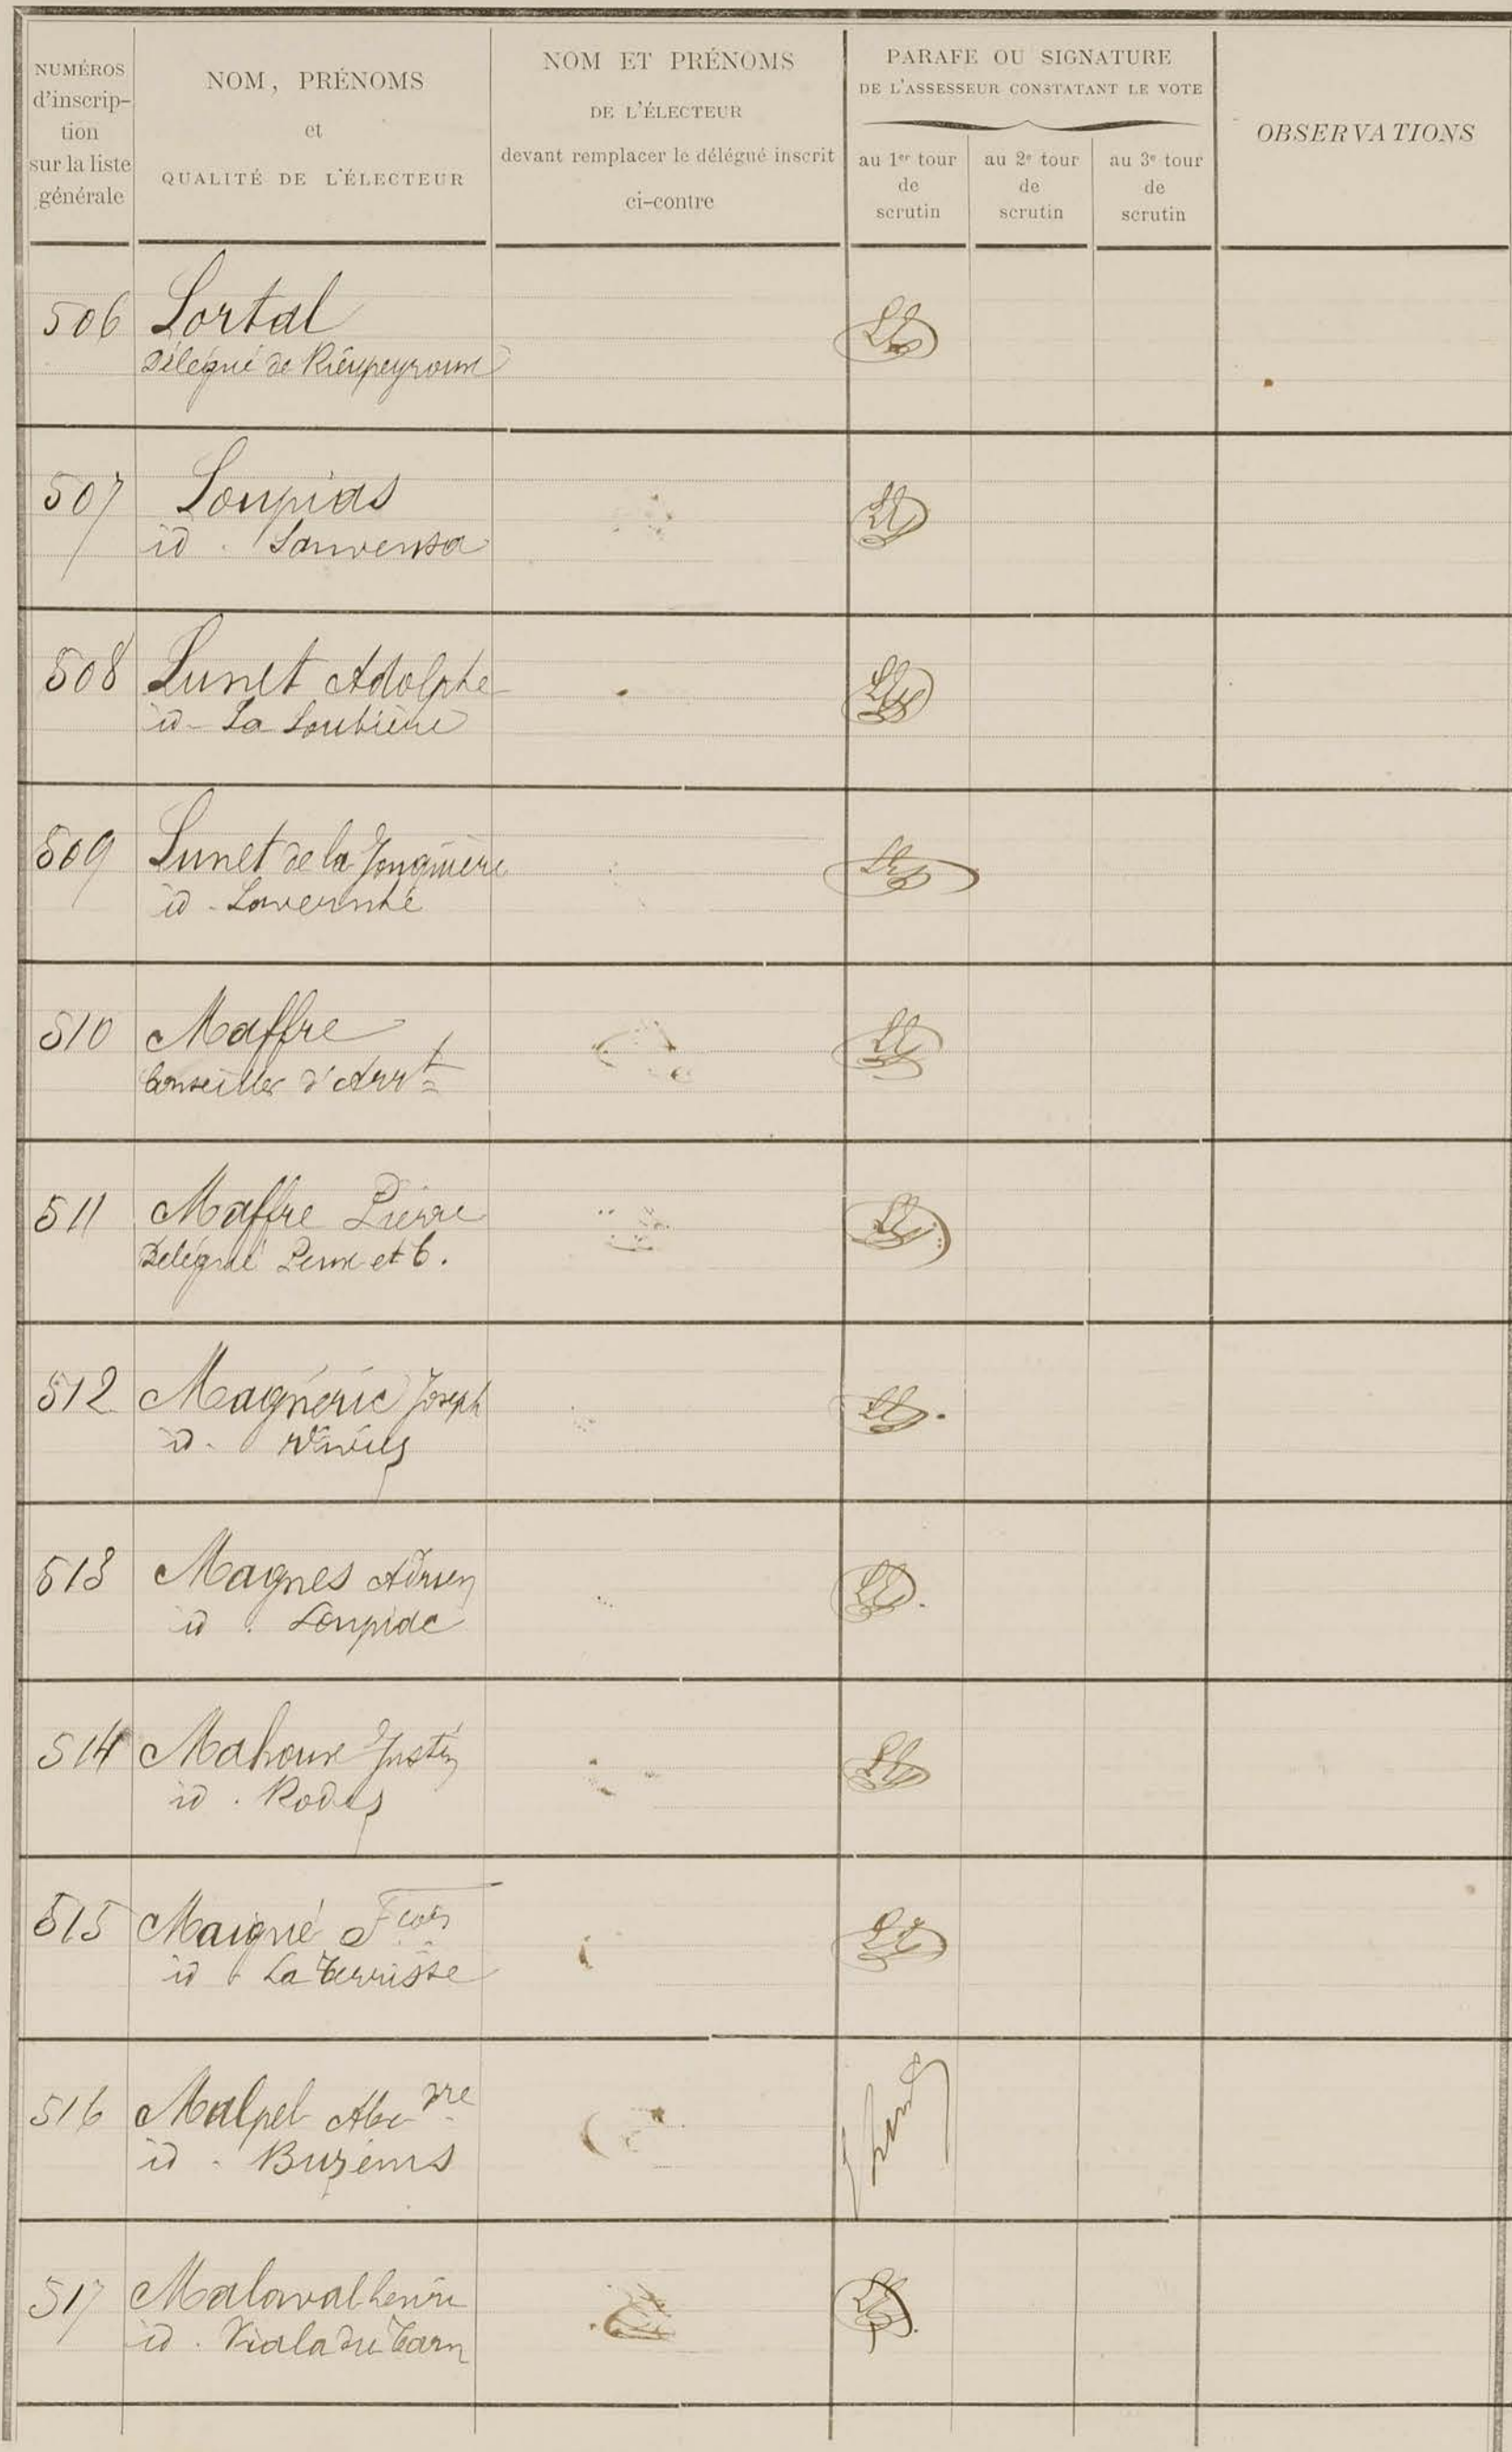 NUMÉROS
d'inscrip-
tion
sur la liste
générale
NOM, PRÉNOMS
et
QUALITÉ DE L'ÉLECTEUR
NOM ET PRÉNOMS
DE L'ÉLECTEUR
devant remplacer le délégué inscrit
ci-contre
PARAFE OU SIGNATURE
DE L'ASSESSEUR CONSTATANT LE VOTE
au 1er tour
de
scrutin
au 2e tour
de
scrutin
au 3e tour
de
scrutin
OBSERVATIONS
506 Lortal
Délégué de Rieupeyroux
507 Loupias
id. Sanvensa
508 Lunet Adolphe
id - La Loubière
509 Lunet de la Jonquière
id - Lavernhe
510 Maffre
Conseiller d'Arrt
511 Maffre Pierre
Délégué Peux et C.
512 Magnéric Joseph
id.
513 Magnes Adrien
id. Loupiac
514 Mahoux Justin
id. Rodez
515 Maigné Fcois
id. La Terrisse
516 Malpel Alexdre
id. Buzeins
517 Malaval henri
id. Viala du Tarn